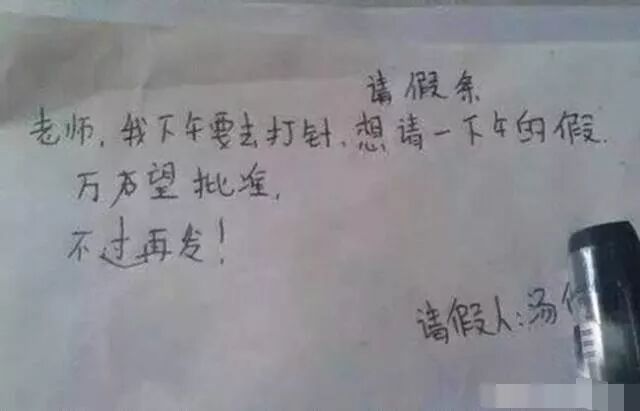 请假条
老师，我下午要去打针、想请一下午的假.
万为望批准，
不过再发！
请假人:汤